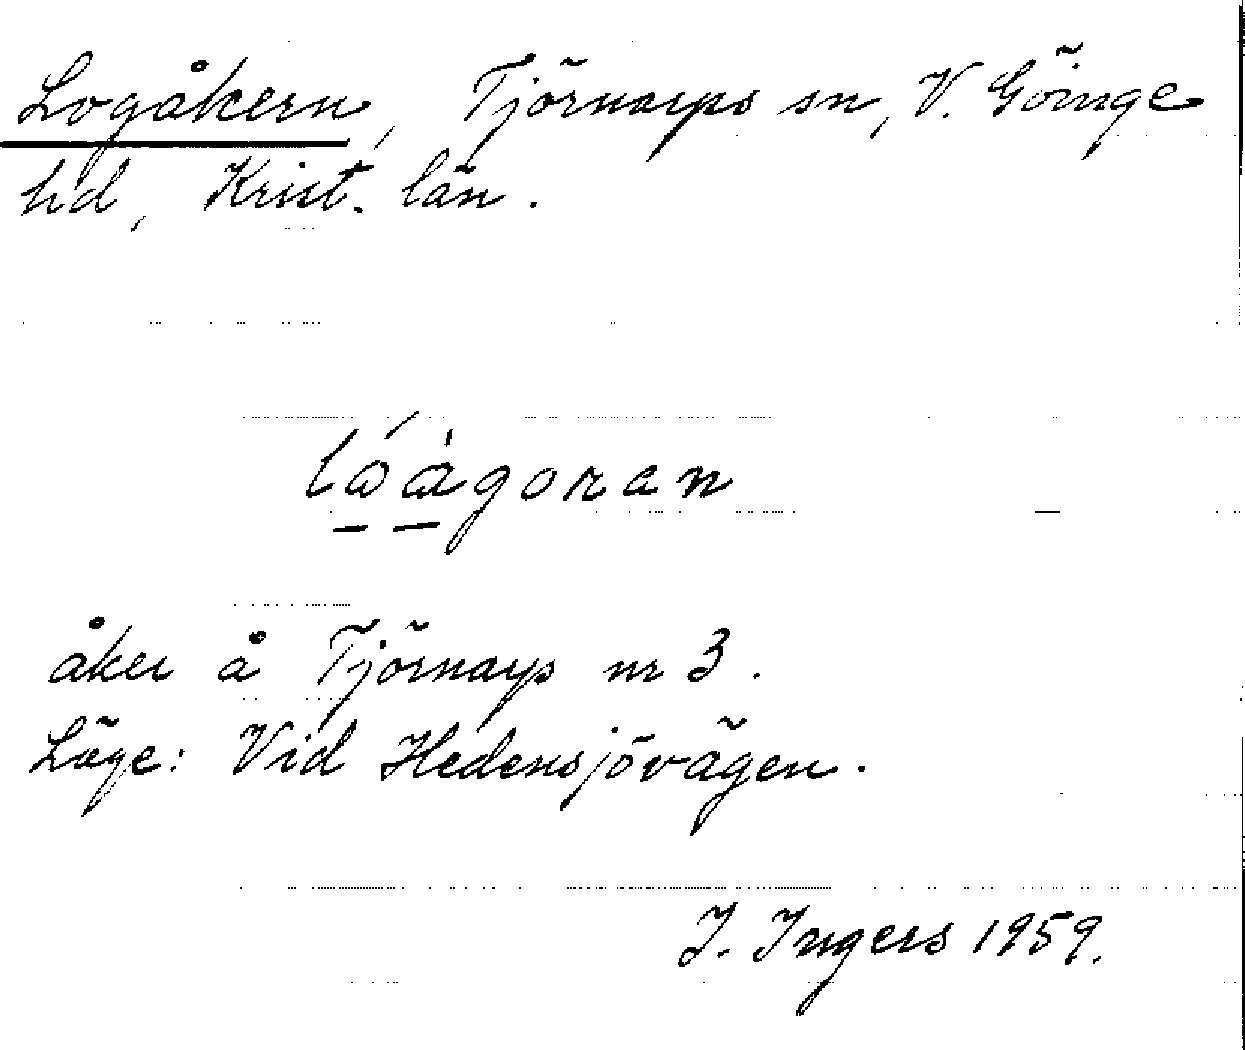 Logåkern, Tjörnarps sn, V. Göinge
hd, Krist. län.
lóàgoran
åker å Tjörnarp nr 3.
Läge: Vid Hedensjövägen.
I. Ingers 1959.